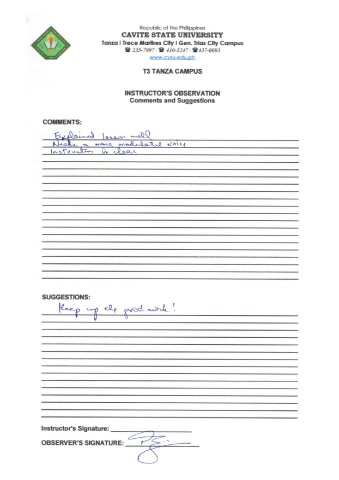 Republic of the Philippines
CAVITE STATE UNIVERSITY
Tanza | Trece Martires City | Gen. Trias City Campus
☎ 235-7997 ☎ 410-5247 ☎ 437-0693
www.cvsu.edu.ph
T3 TANZA CAMPUS
INSTRUCTOR'S OBSERVATION
Comments and Suggestions
COMMENTS:
Explained lesson well
Needs a more modulated voice
Instruction is clear
SUGGESTIONS:
Keep up the good work!
Instructor's Signature:
OBSERVER'S SIGNATURE: